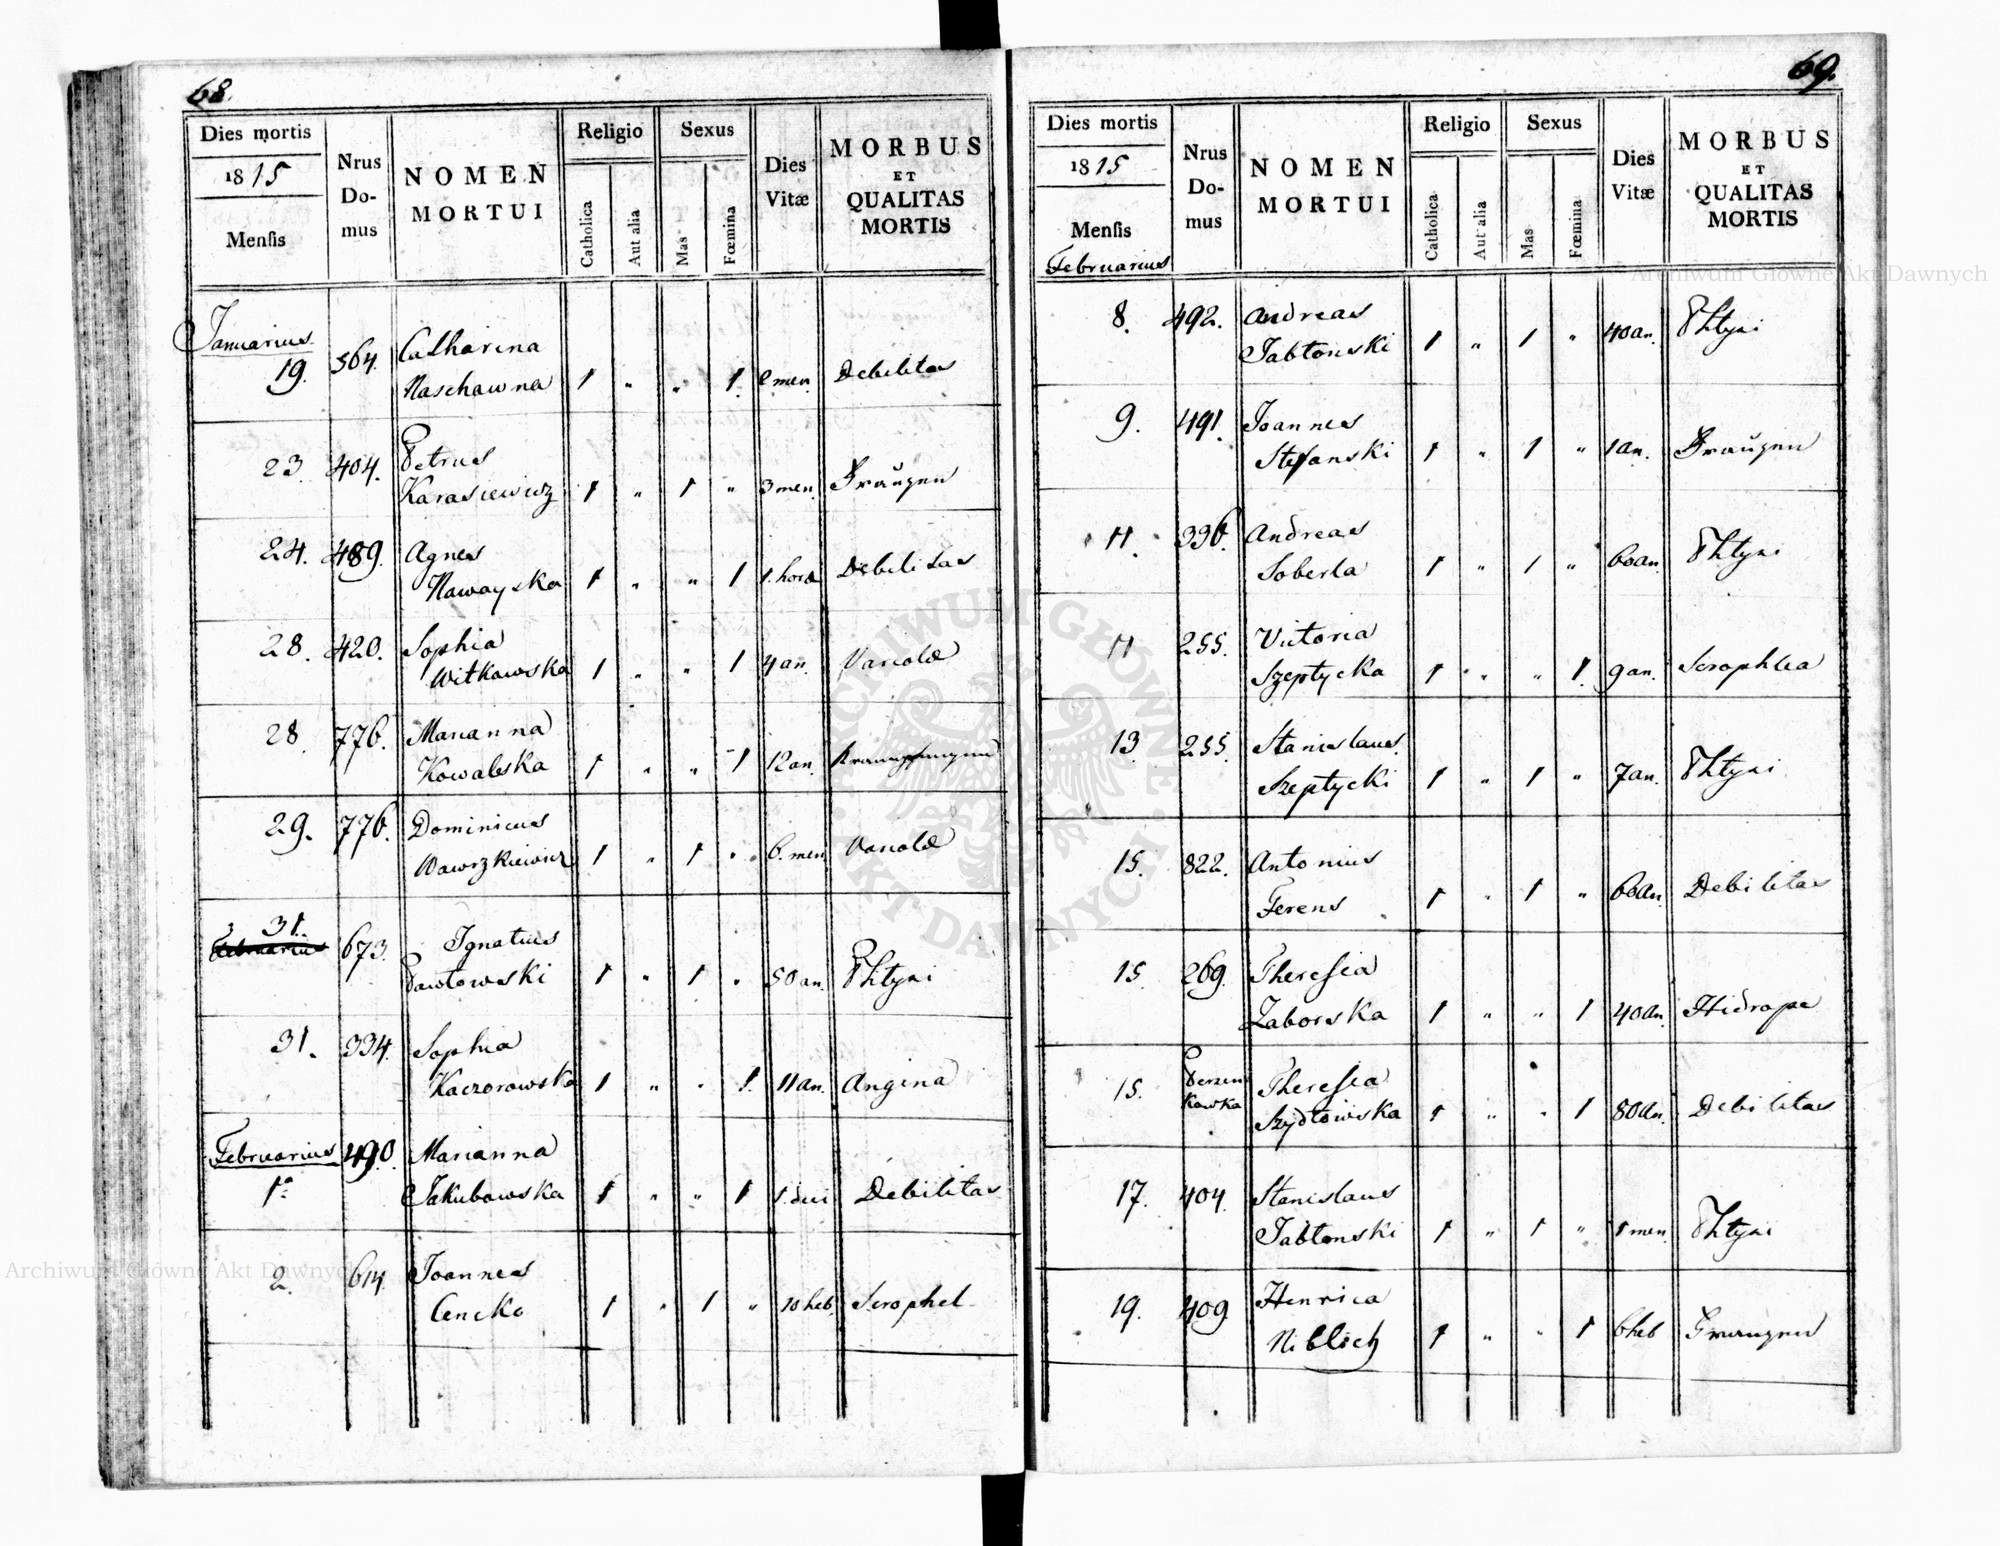 68.
Dies mortis
1815
Mensis
Nrus Domus
NOMEN
MORTUI
Religio
Catholica
Aut alia
Sexus
Mas
Fœmina
Dies
Vitæ
MORBUS
ET
QUALITAS
MORTIS
Januarius
19. 564. Catharina
Naschawna 1 " " 1. 2 men. Debilitas
23. 404. Petrus
Karasiewicz 1 " 1 " 3 men. Fraüzen
24. 489. Agnes
Nawayska 1 " " 1 1. hora Debilitas
28. 420. Sophia
Witkowska 1 " " 1 4 an. Variolæ
28. 776. Marianna
Kowalska 1 " " 1 12 an.
29. 776. Dominicus
Wawrzkiewicz 1 " 1 " 6. men Variolæ
31.
Februarius 673. Ignatius
Pawłowski 1 " 1 " 50 an. Phtysi
31. 334. Sophia
Kaczorowska 1 " " 1. 11 an. Angina
Februarius 490. Marianna
1a Jakubowska 1 " " 1 1. diei Debilitas
2. 614. Joannes
Cencko 1 " 1 " 10 heb. Scrophel
69.
Dies mortis
1815
Mensis
Februarius
Nrus Domus
NOMEN
MORTUI
Religio
Catholica
Aut alia
Sexus
Mas
Fœmina
Dies
Vitæ
MORBUS
ET
QUALITAS
MORTIS
8. 492. Andreas
Jabłonski 1 " 1 " 40 an. Phtysi
9. 491. Joannes
Stefanski 1 " 1 " 1 an. Fraüzen
11. 336. Andreas
Soberla 1 " 1 " 60 an. Phtysi
11 255. Victoria
Szeptycka 1 " " 1. 9 an. Scrophlea
13. 255. Stanislaus
Szeptycki 1 " 1 " 7 an. Phtysi
15. 822. Antonius
Ferens 1 " 1 " 60 an. Debilitas
15. 269. Theresia
Zaborska 1 " " 1 40 an. Hidrope
15. Persenkowka Theresia
Szydłowska 1 " " 1 80 an. Debilitas
17. 404. Stanislaus
Jabłonski 1 " 1 " 1 men. Phtysi
19. 409. Henrica
Niblich 1 " " 1 6 heb Frauzen
Archiwum Główne Akt Dawnych
ARCHIWUM GŁÓWNE · AKT DAWNYCH ·
Archiwum Główne Akt Dawnych